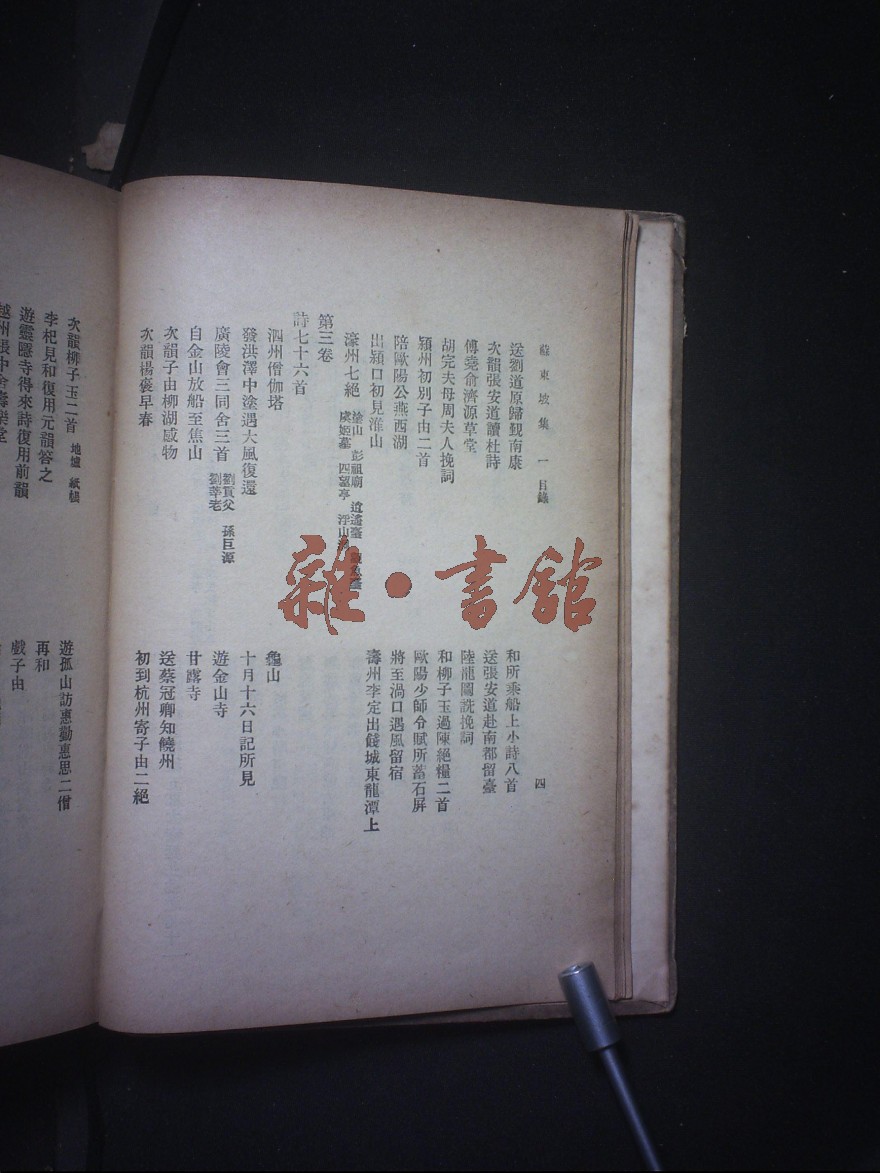 蘇東坡集 一 目錄 四
送劉道原歸覲南康 和所乘船上小詩八首
次韻張安道讀杜詩 送張安道赴南都留臺
傅堯俞濟源草堂 陸龍圖詵挽詞
胡完夫母周夫人挽詞 和柳子玉過陳絕糧二首
潁州初別子由二首 歐陽少師令賦所蓄石屏
陪歐陽公燕西湖 將至渦口遇風留宿
出潁口初見淮山 壽州李定出餞城東龍潭上
濠州七絕 塗山 彭祖廟 逍遙臺
虞姬墓 四望亭 浮山
第三卷
詩七十六首
泗州僧伽塔 龜山
發洪澤中塗遇大風復還 十月十六日記所見
廣陵會三同舍三首 劉貢父 孫巨源 劉莘老 遊金山寺
自金山放船至焦山 甘露寺
次韻子由柳湖感物 送蔡冠卿知饒州
次韻楊褒早春 初到杭州寄子由二絕
次韻柳子玉二首 地爐 紙帳 遊孤山訪惠勤惠思二僧
李杞見和復用元韻答之 再和
遊靈隱寺得來詩復用前韻 戲子由
越州張中舍壽樂堂
雜·書館